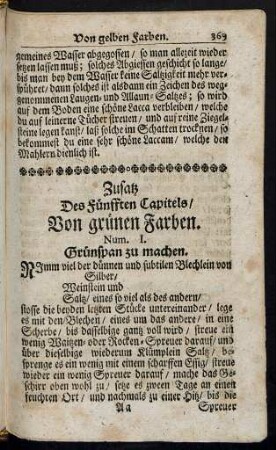 Von gelben Farben. 369
gemeines Wasser abgegossen / so man allezeit wieder
setzen lassen muß; solches Abgiessen geschicht so lange/
bis man bey dem Wasser keine Saltzigkeit mehr ver-
spühret / dann solches ist alsdann ein Zeichen des weg-
genommenen Laugen- und Allaun-Saltzes; so wird
auf dem Boden eine schöne Lacca verbleiben / welche
du auf leinerne Tücher streuen / und auf reine Ziegel-
steine legen kanst/ laß solche im Schatten trocknen / so
bekommest du eine sehr schöne Laccam / welche den
Mahlern dienlich ist.
Zusatz
Des Fünfften Capitels /
Von grünen Farben.
Num. I.
Grünspan zu machen.
NImm viel der dünnen und subtilen Blechlein von
Silber/
Weinstein und
Saltz / eines so viel als des andern /
stosse die beyden letzten Stücke untereinander / lege
es mit den Blechen / eines um das andere / in eine
Scherbe / bis dasselbige gantz voll wird / streue ein
wenig Waitzen- oder Rocken-Spreuer darauf / und
über dieselbige wiederum Klümplein Saltz / be-
sprenge es ein wenig mit einem scharffen Essig / streue
wieder ein wenig Spreuer darauf / mache das Ge-
schirr oben wohl zu / setze es zween Tage an einen
feuchten Ort / und nachmals zu einer Hitz / bis die
Aa Spreuer